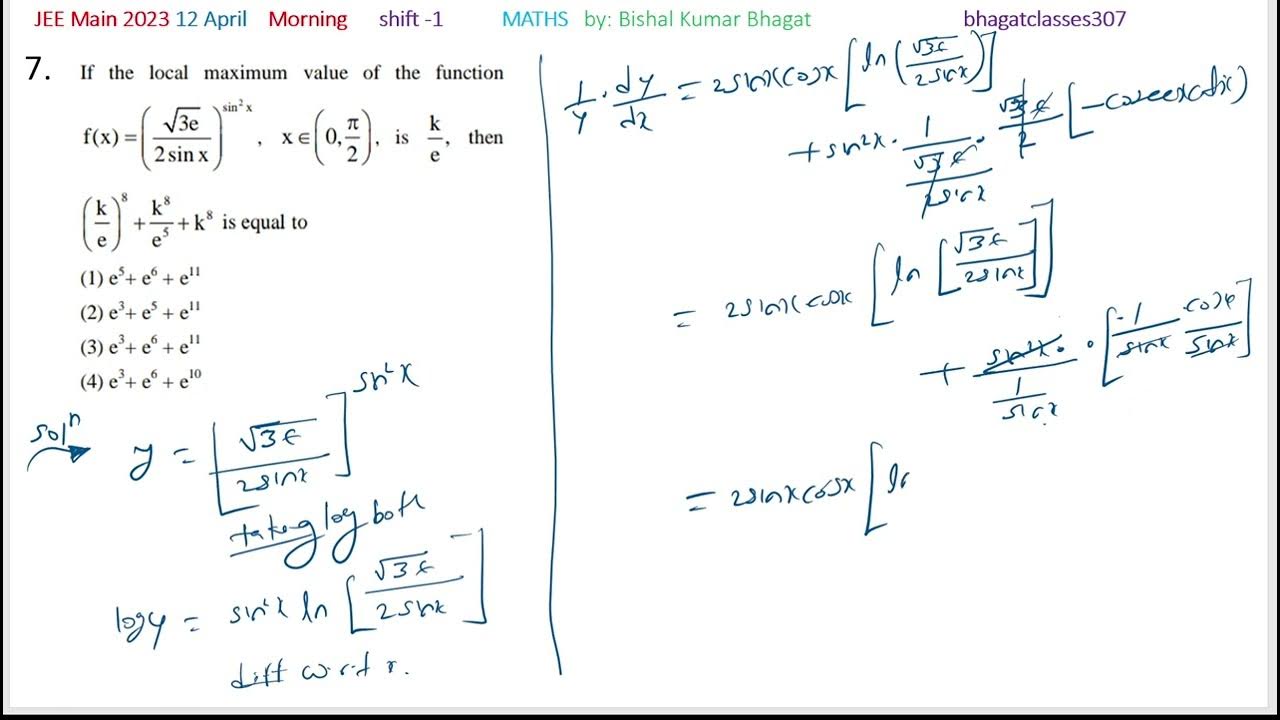 JEE Main 2023 12 April Morning shift -1 MATHS by: Bishal Kumar Bhagat bhagatclasses307
7. If the local maximum value of the function
f(x) = (√3e / 2 sin x)^(sin² x), x ∈ (0, π/2), is k/e, then
(k/e)⁸ + k⁸/e⁵ + k⁸ is equal to
(1) e⁵+ e⁶ + e¹¹
(2) e³+ e⁵ + e¹¹
(3) e³+ e⁶ + e¹¹
(4) e³+ e⁶ + e¹⁰
Solⁿ
y = [√3e / 2sinx]^(sin²x)
taking log both
log y = sin²x ln [√3e / 2sinx]
diff w.r.t x.
1/y · dy/dx = 2sinx cosx [ln(√3e / 2sinx)]
+ sin²x · 1/(√3e / 2sinx) · √3e/2 [-cosecx cotx)
= 2sinx cosx [ln [√3e / 2sinx]]
+ sin²x· / (1/sinx) · [-1/sinx cosx/sinx]
= 2sinx cosx [ln